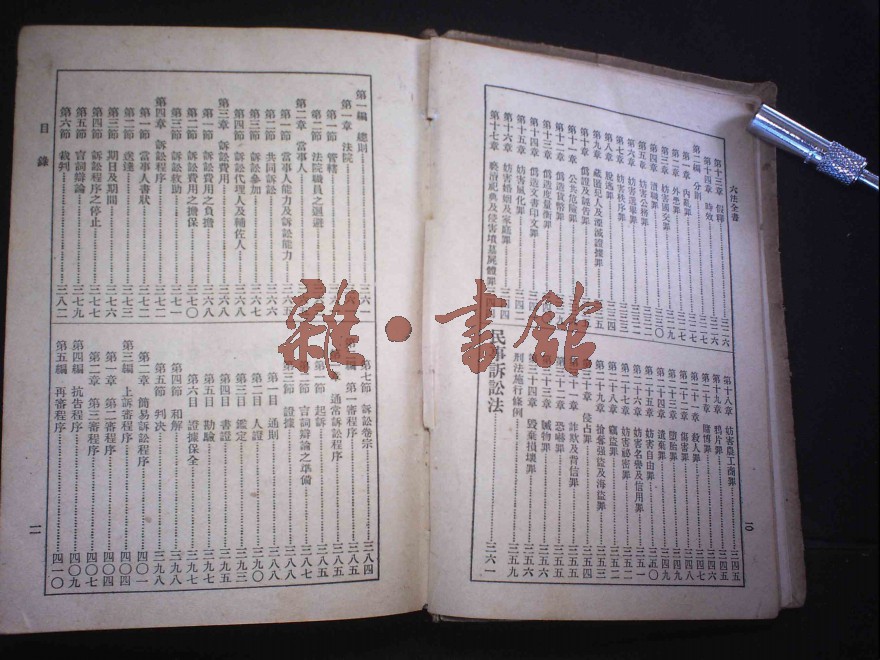 六法全書
第十三章 假釋……三二六
第十四章 時效……三二六
第二編 分則……三二七
第一章 內亂罪……三二七
第二章 外患罪……三二七
第三章 妨害國交罪……三二九
第四章 瀆職罪……三三〇
第五章 妨害公務罪
第六章 妨害選舉罪
第七章 妨害秩序罪
第八章 脫逃罪
第九章 藏匿犯人及湮滅證據罪
第十章 偽證及誣告罪
第十一章 公共危險罪
第十二章 偽造貨幣罪
第十三章 偽造度量衡罪
第十四章 偽造文書印文罪
第十五章 妨害風化罪
第十六章 妨害婚姻及家庭罪
第十七章 褻瀆祀典及侵害墳墓屍體罪
第十八章 妨害農工商罪……三四五
第十九章 鴉片罪……三四六
第二十章 賭博罪……三四七
第二十一章 殺人罪……三四七
第二十二章 傷害罪……三四八
第二十三章 墮胎罪……三四九
第二十四章 遺棄罪……三四九
第二十五章 妨害自由罪……三五〇
第二十六章 妨害名譽及信用罪……三五一
第二十七章 妨害祕密罪……三五二
第二十八章 竊盜罪……三五二
第二十九章 搶奪强盜及海盜罪……三五三
第三十章 侵占罪……三五四
詐欺及背信罪……三五五
恐嚇罪……三五五
贓物罪……三五六
毀棄損壞罪……三五六
刑法施行條例……三五九
民事訴訟法……三六一
一〇
第一編 總則……三六一
第一章 法院
第一節 管轄
第二節 法院職員之迴避
第二章 當事人
第一節 當事人能力及訴訟能力……三六五
第二節 共同訴訟……三六六
第三節 訴訟參加……三六七
第四節 訴訟代理人及輔佐人……三六八
第三章 訴訟費用……三六八
第一節 訴訟費用之負擔……三六八
第二節 訴訟費用之擔保……三七〇
第三節 訴訟救助……三七一
第四章 訴訟程序……三七二
第一節 當事人書狀……三七二
第二節 送達……三七三
第三節 期日及期間……三七六
第四節 訴訟程序之停止……三七七
第五節 言詞辯論……三七九
第六節 裁判……三八二
目錄
第七節 訴訟卷宗……三八四
第一審程序……三八五
通常訴訟程序……三八五
第一節 起訴……三八五
第二節 言詞辯論之準備……三八七
第三節 證據……三八八
第一目 通則……三八八
第二目 人證……三九〇
第三目 鑑定……三九三
第四目 書證……三九五
第五目 勘驗……三九七
第六目 證據保全……三九七
第四節 和解……三九八
第五節 判決……三九八
第二章 簡易訴訟程序……四〇一
第三編 上訴審程序……四〇四
第一章 第二審程序……四〇四
第二章 第三審程序……四〇七
第四編 抗告程序……四〇九
第五編 再審程序……四一〇
一一
雜·書館